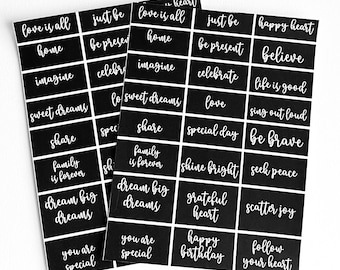 love is all
just be
happy heart
home
be present
believe
imagine
celebrate
life is good
sweet dreams
love
sing out loud
share
special day
be brave
family
is forever
shine bright
seek peace
dream big
dreams
grateful
heart
scatter joy
you are
special
happy
birthday
follow
your heart
love is all
just be
heart
home
be prese
imagine
celebra
sweet dreams
lo
share
special
family
is forever
shine b
dream big
dreams
grat
he
you are
special
ha
birt